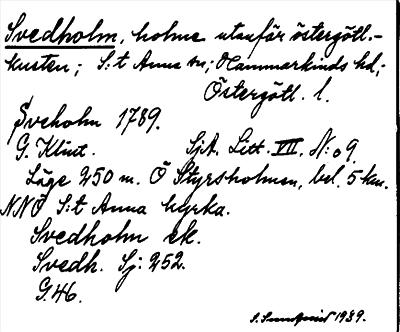 Svedholm, holme utanför östergötl.-
kusten; S:t Anna sn; Hammarkinds hd;
Östergötl. l.
Sveholm 1789.
G. Klint. SjA. Litt. VII. N:o 9.
Läge 250 m. Ö Styrsholmen, bel. 5 km.
NNÖ S:t Anna kyrka.
Svedholm ek.
Svedh. Sj: 252.
G. 46.
1939.